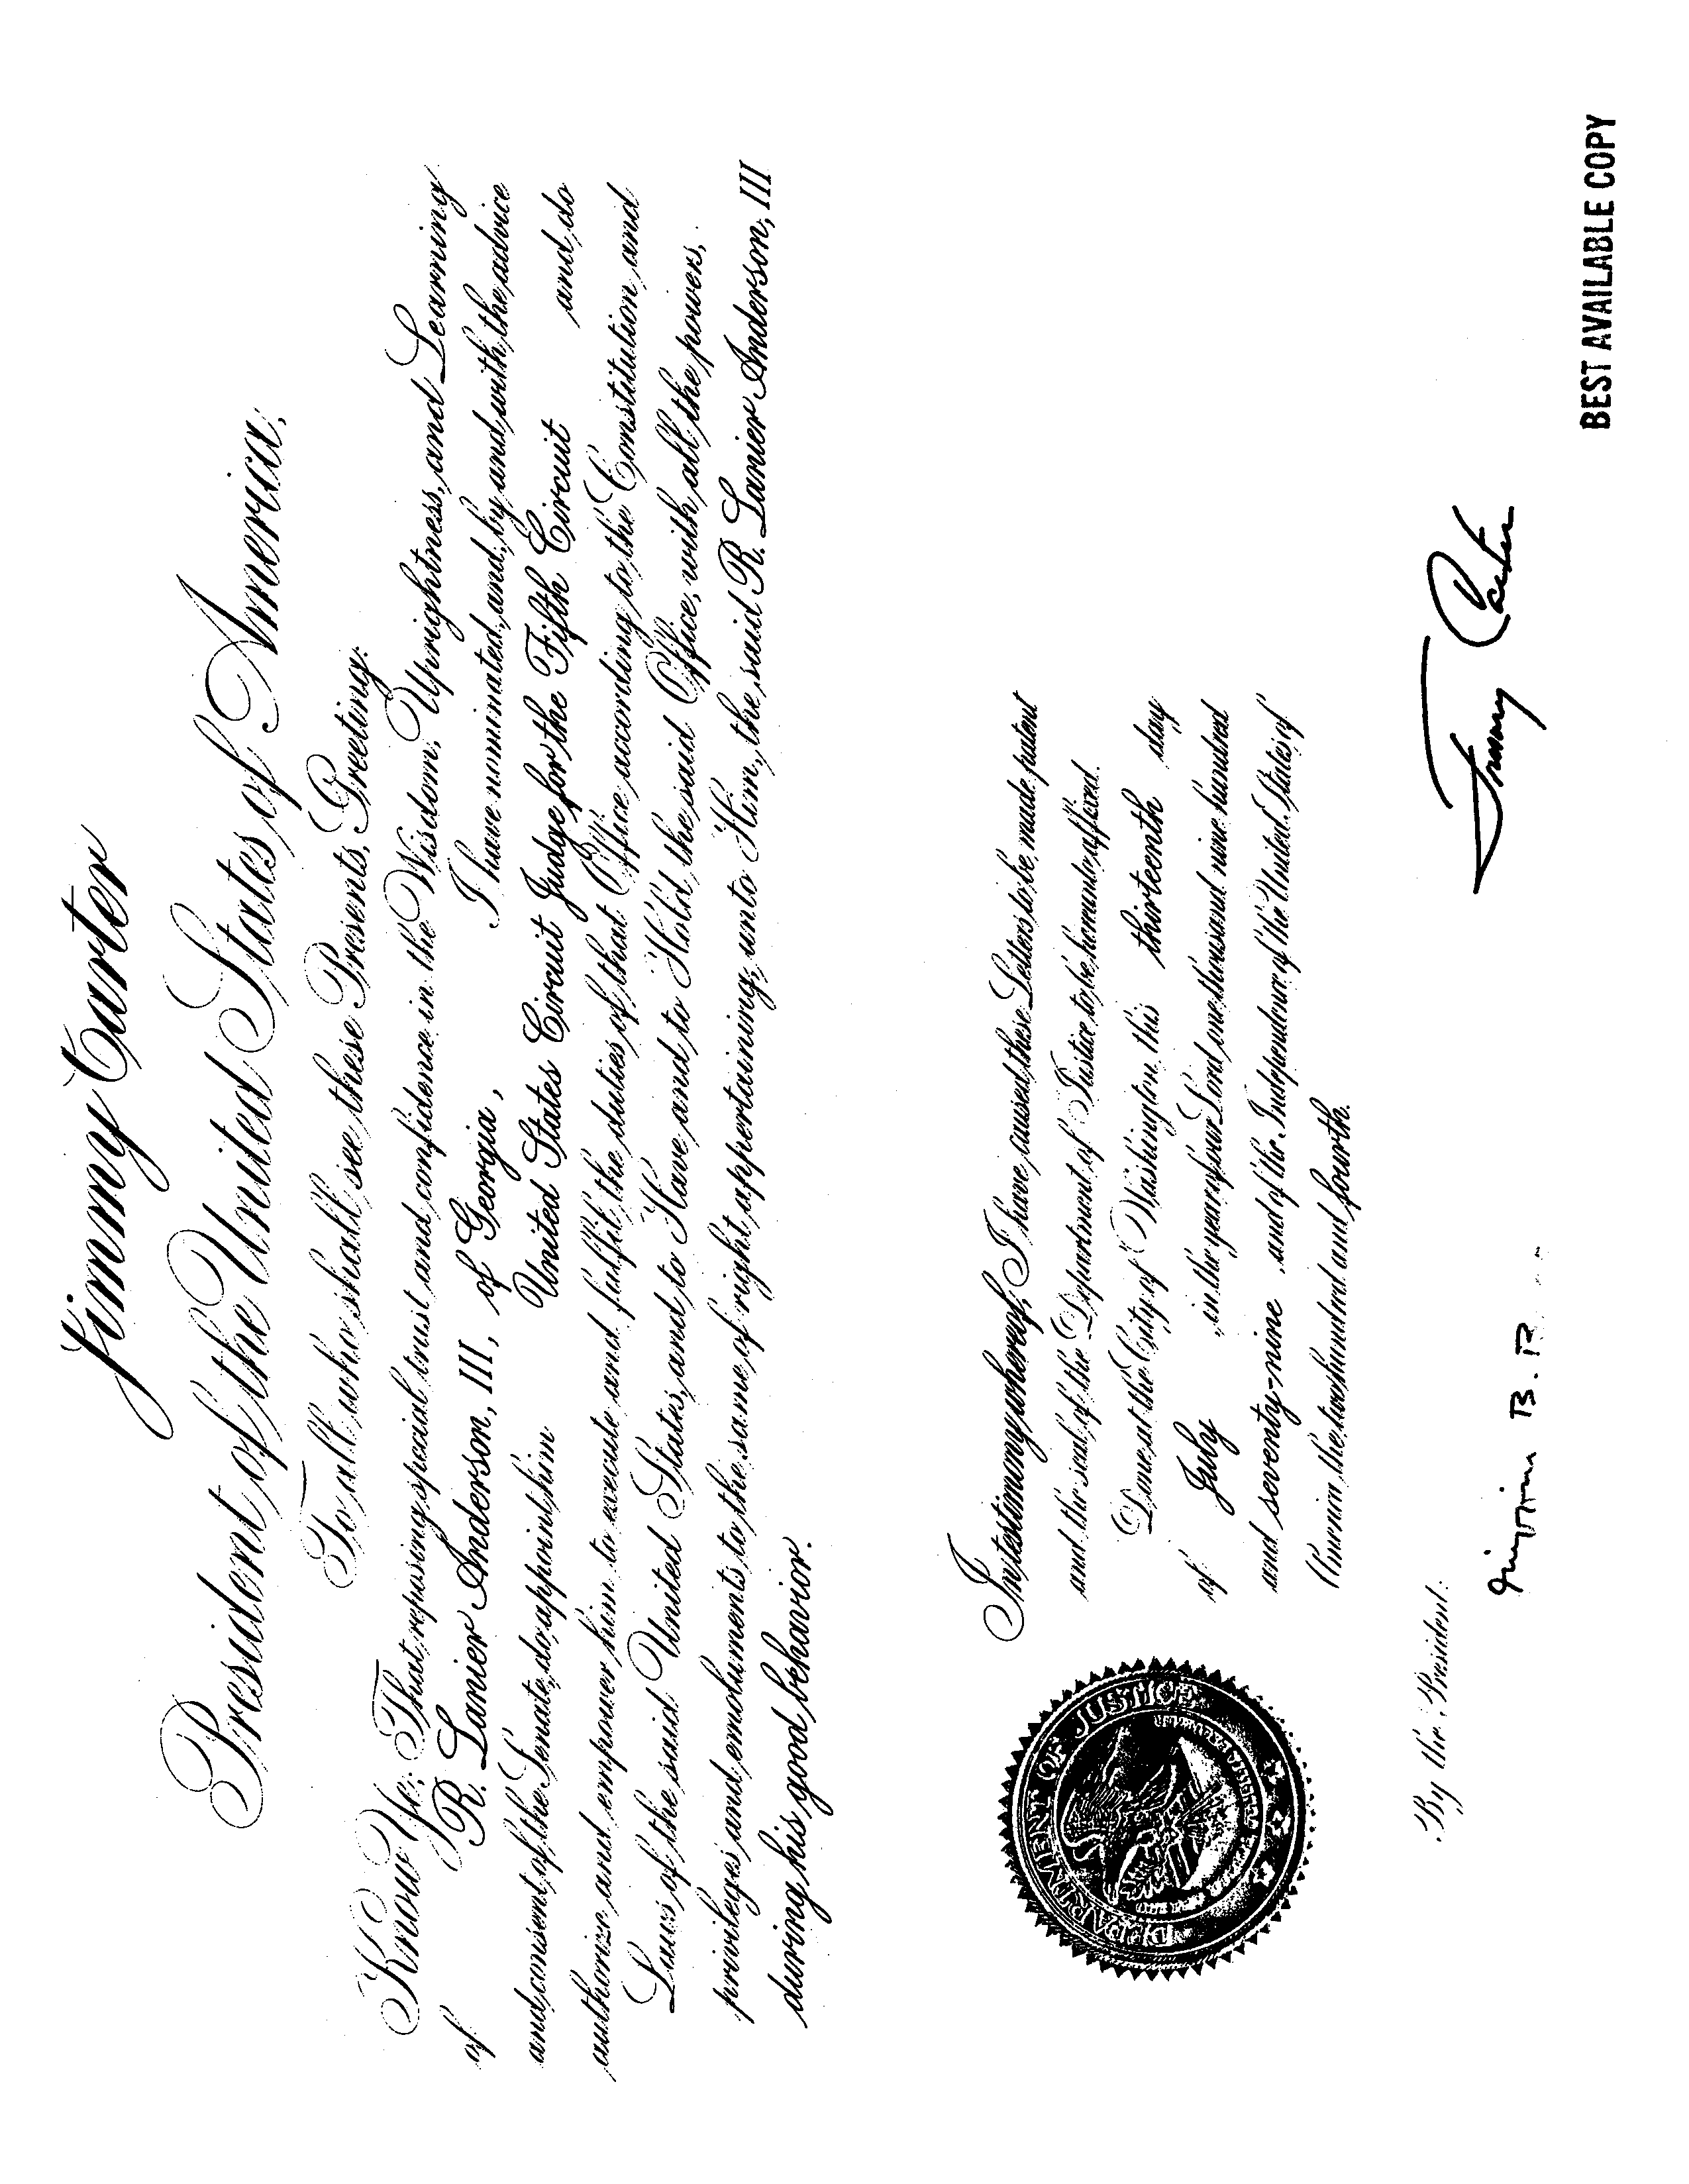 Jimmy Carter
President of the United States of America,
To all who shall see these Presents, Greeting:
Know Ye; That reposing special trust and confidence in the Wisdom, Uprightness, and Learning
of R. Lanier Anderson, III, of Georgia, I have nominated, and, by and with the advice
and consent of the Senate, do appoint him United States Circuit Judge for the Fifth Circuit and do
authorize and empower him to execute and fulfil the duties of that Office according to the Constitution and
Laws of the said United States, and to Have and to Hold the said Office, with all the powers,
privileges and emoluments to the same of right appertaining, unto Him, the said R. Lanier Anderson, III
during his good behavior.
In testimony whereof, I have caused these Letters to be made patent
and the seal of the Department of Justice to be hereunto affixed.
Done at the City of Washington this thirteenth day
of July , in the year of our Lord one thousand nine hundred
and seventy-nine , and of the Independence of the United States of
America the two hundred and fourth.
DEPARTMENT OF JUSTICE
Jimmy Carter
By the President:
B.
BEST AVAILABLE COPY